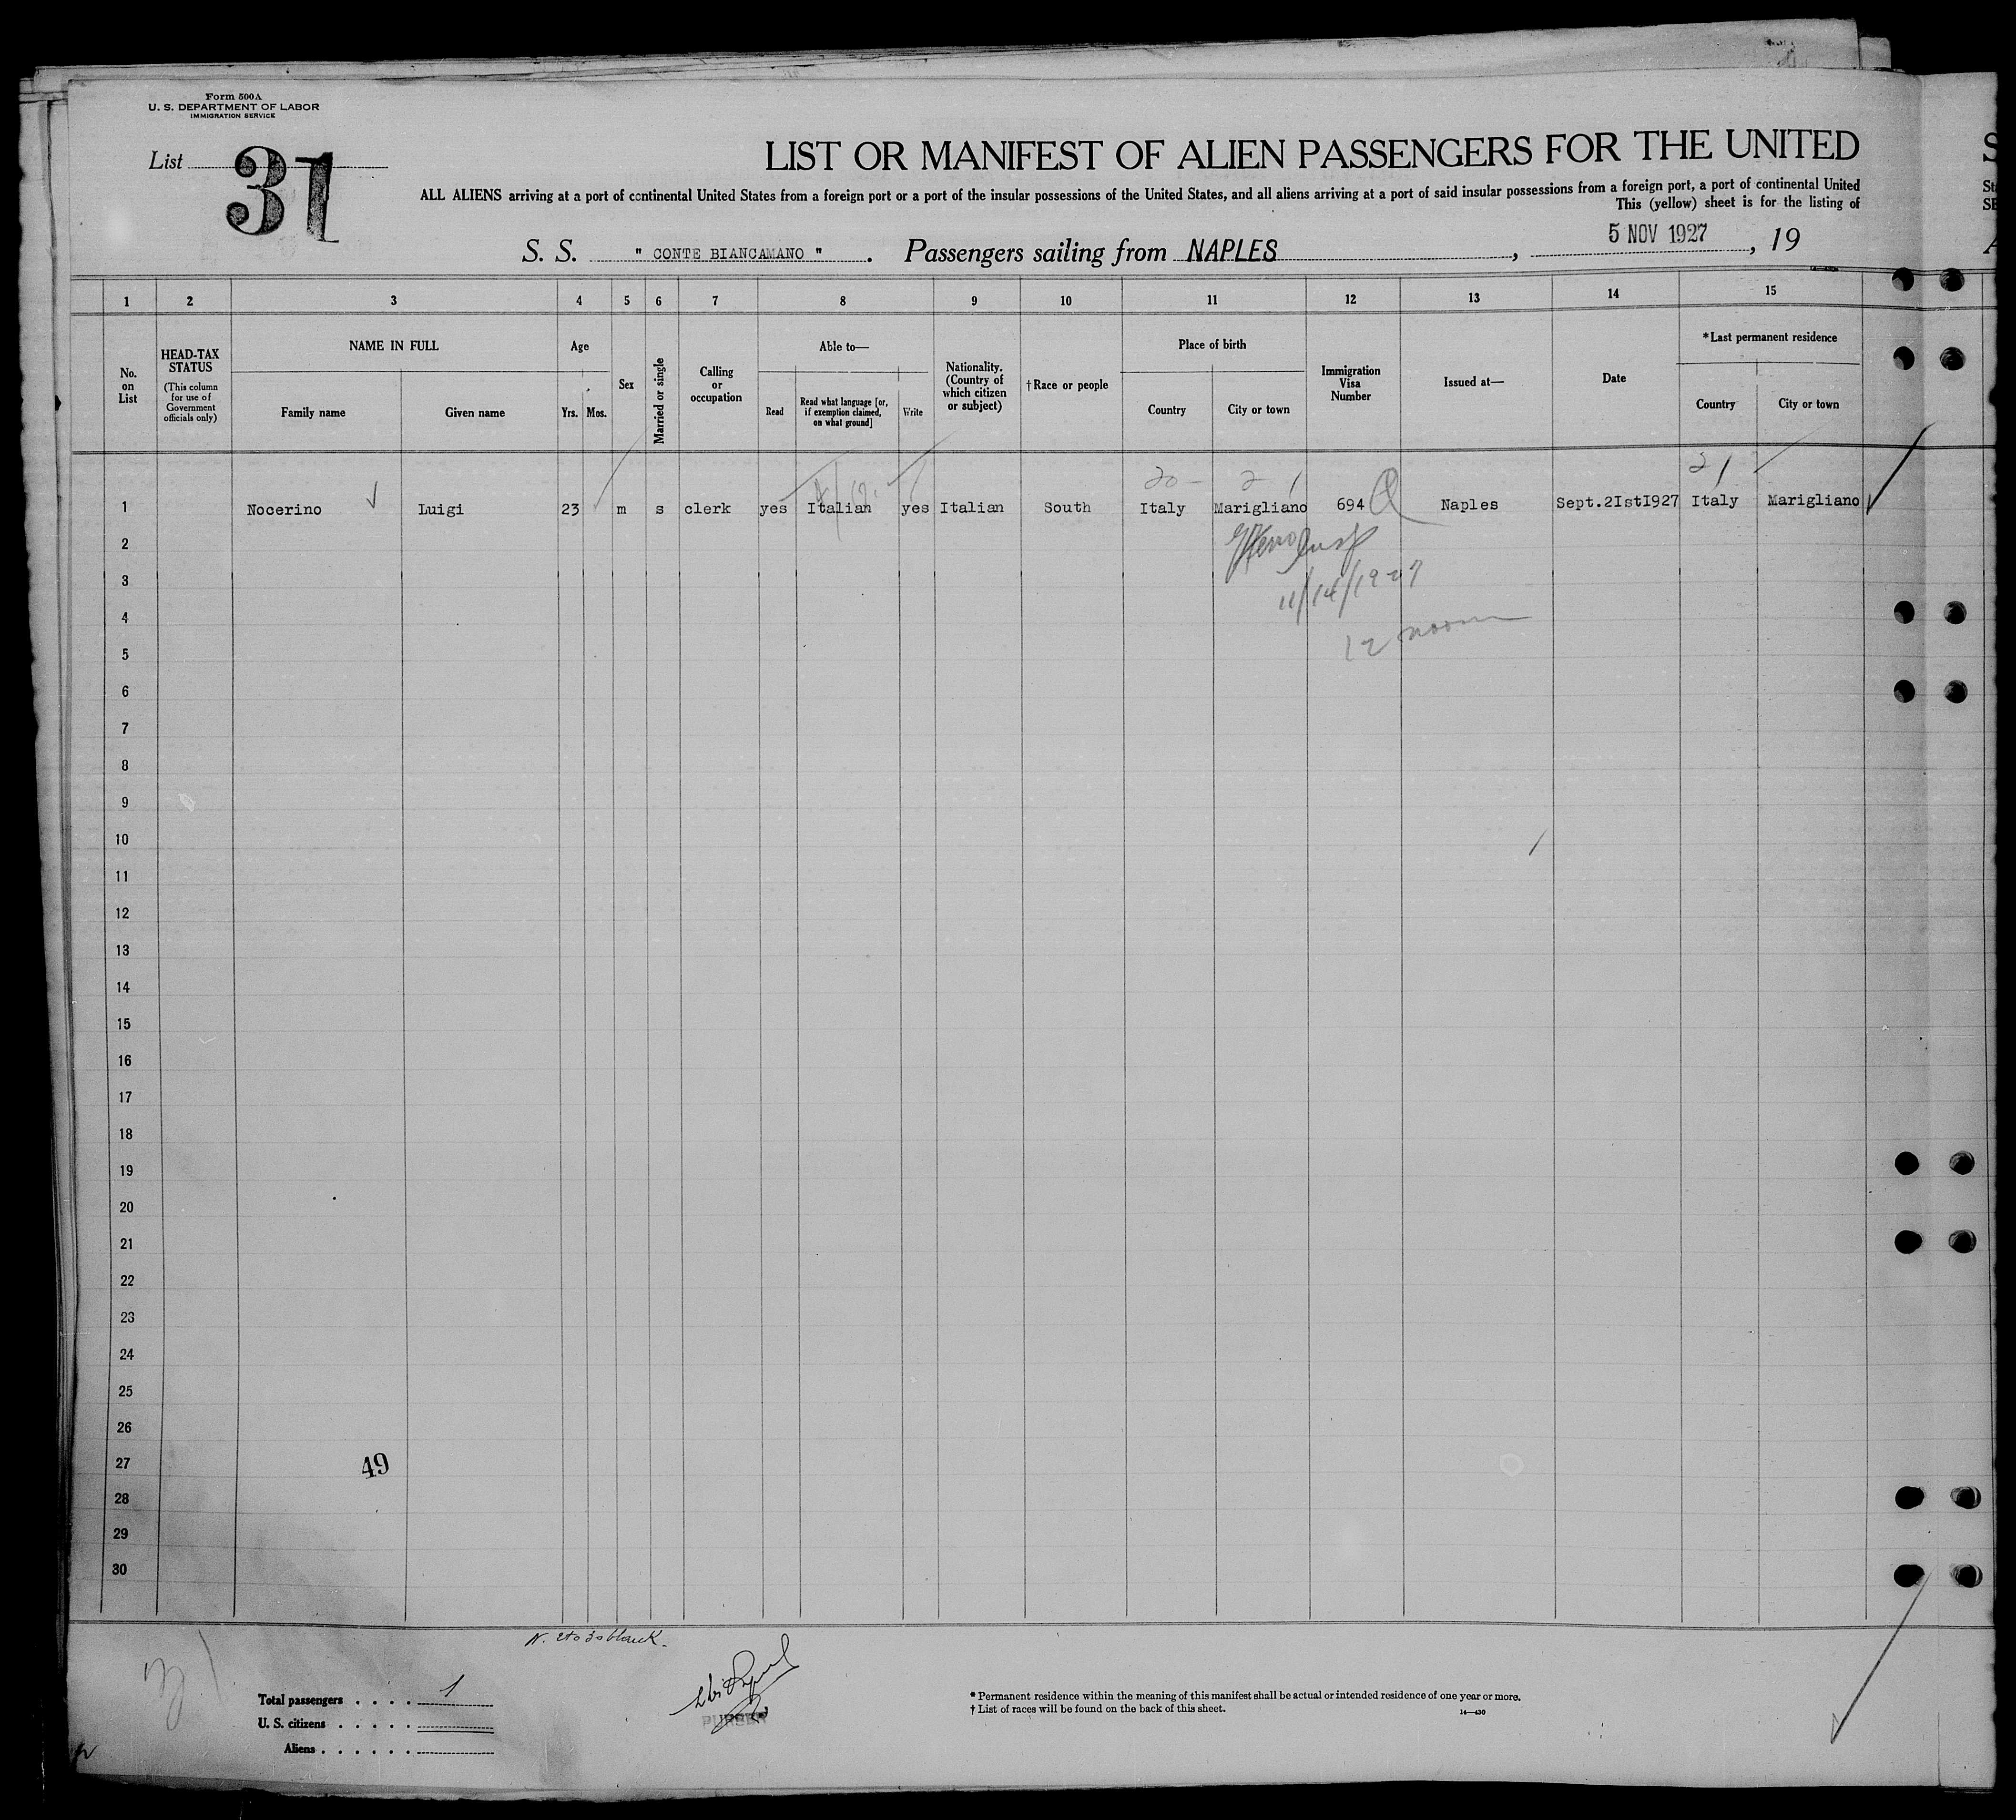 Form 500A
U. S. DEPARTMENT OF LABOR
IMMIGRATION SERVICE
List 31
LIST OR MANIFEST OF ALIEN PASSENGERS FOR THE UNITED
ALL ALIENS arriving at a port of continental United States from a foreign port or a port of the insular possessions of the United States, and all aliens arriving at a port of said insular possessions from a foreign port, a port of continental United
This (yellow) sheet is for the listing of
S. S. " CONTE BIANCAMANO ". Passengers sailing from NAPLES, 5 NOV 1927, 19
1 2 3 4 5 6 7 8 9 10 11 12 13 14 15
No. on List
HEAD-TAX STATUS
(This column for use of Government officials only)
NAME IN FULL
Family name
Given name
Age
Yrs. Mos.
Sex
Married or single
Calling or occupation
Able to—
Read
Read what language [or, if exemption claimed, on what ground]
Write
Nationality. (Country of which citizen or subject)
†Race or people
Place of birth
Country
City or town
Immigration Visa Number
Issued at—
Date
*Last permanent residence
Country
City or town
20 2 1 21
1 Nocerino Luigi 23 m s clerk yes Italian yes Italian South Italy Marigliano 694 Q Naples Sept.2Ist1927 Italy Marigliano
2
3 11/14/1927
4 12 noon
5
6
7
8
9
10
11
12
13
14
15
16
17
18
19
20
21
22
23
24
25
26
27 49
28
29
30
N. 2 to 30 blank.
Total passengers . . . . 1
U. S. citizens . . . . .
Aliens . . . . . .
PURSER
* Permanent residence within the meaning of this manifest shall be actual or intended residence of one year or more.
† List of races will be found on the back of this sheet.
14—430